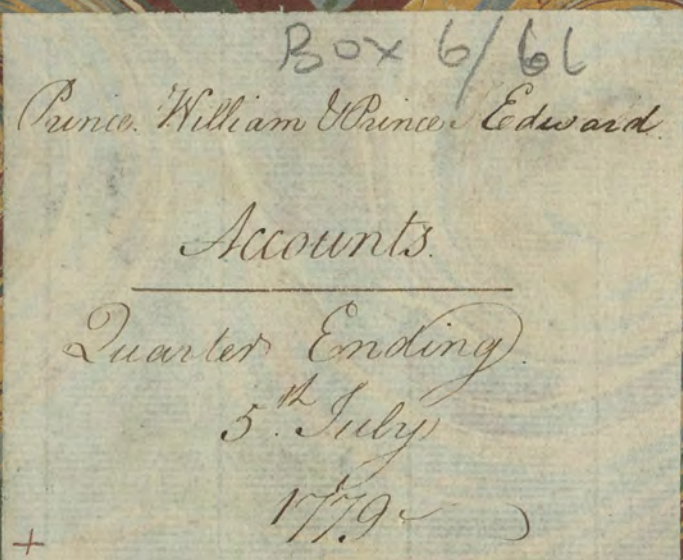 Box 6/66
Prince William & Prince Edward
Accounts.
Quarter Ending
5th. July
1779
+